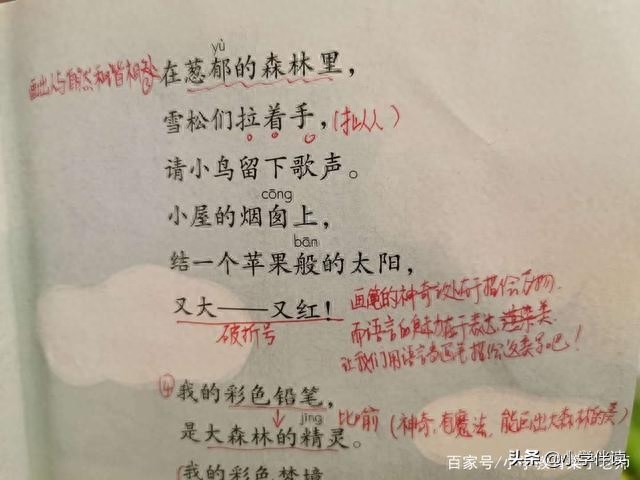 yù
画出人与自然和谐相处
在葱郁的森林里，
雪松们拉着手，(拟人)
请小鸟留下歌声。
cōng
小屋的烟囱上，
bān
结一个苹果般的太阳，
又大——又红！
破折号
画笔的神奇之处在于描绘万物.
而语言的魅力在于表达
让我们用语言
描绘这美了吧！
④我的彩色铅笔，
比喻前 (神奇,有魔法,能画出大森林的美)
jīng
是大森林的精灵。
(我的彩色梦境
头条 @小学伴读
百家号/小学